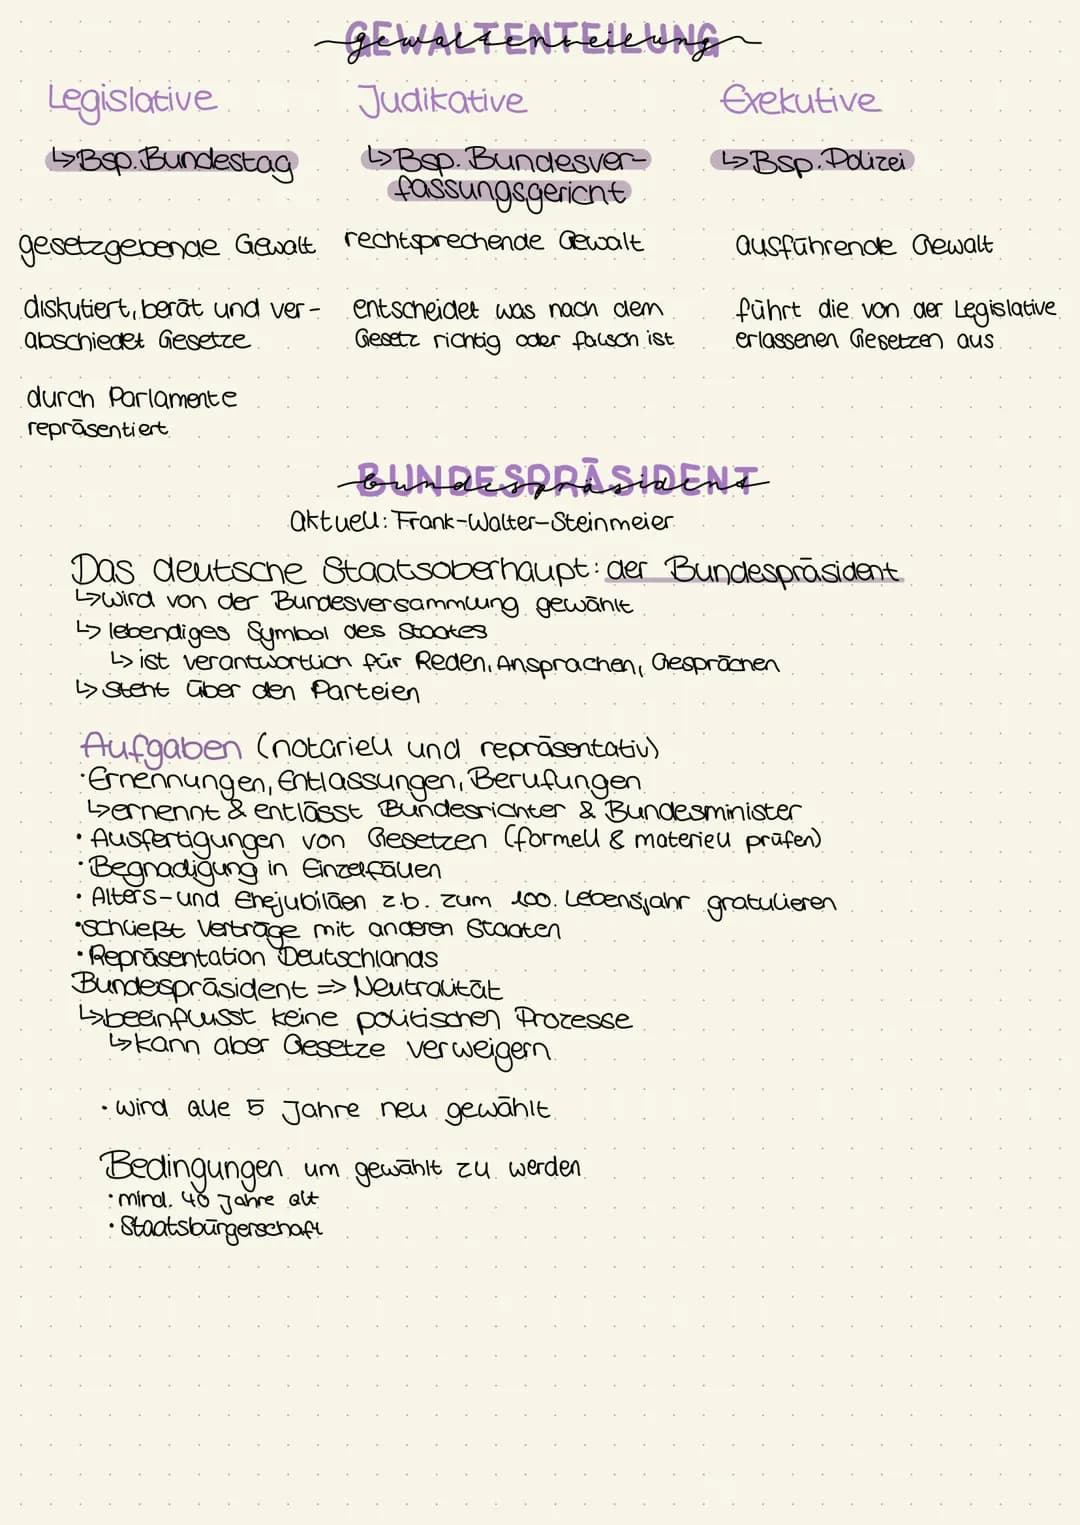 GEWALTENTEILUNG
gewaltenteilung
Legislative Judikative Exekutive
↳Bsp. Bundestag ↳Bsp. Bundesver- ↳Bsp. Polizei
fassungsgericht
gesetzgebende Gewalt rechtsprechende Gewalt ausführende Gewalt
diskutiert, berät und ver- entscheidet was nach dem führt die von der Legislative
abschiedet Gesetze Gesetz richtig oder falsch ist erlassenen Gesetzen aus
durch Parlamente
repräsentiert
BUNDESPRÄSIDENT
bundespräsident
aktuell: Frank-Walter-Steinmeier
Das deutsche Staatsoberhaupt: der Bundespräsident
↳wird von der Bundesversammlung gewählt
↳ lebendiges Symbol des Staates
↳ ist verantwortlich für Reden, Ansprachen, Gesprächen
↳ steht über den Parteien
Aufgaben (notariell und repräsentativ)
·Ernennungen, Entlassungen, Berufungen
↳ernennt & entlässt Bundesrichter & Bundesminister
· Ausfertigungen von Gesetzen (formell & materiell prüfen)
·Begnadigung in Einzelfällen
· Alters-und Ehejubiläen z.b. zum 100. Lebensjahr gratulieren
·schließt Verträge mit anderen Staaten
·Repräsentation Deutschlands
Bundespräsident => Neutralität
↳beeinflusst keine politischen Prozesse
↳kann aber Gesetze verweigern
· wird alle 5 Jahre neu gewählt
Bedingungen um gewählt zu werden
· mind. 40 Jahre alt
· Staatsbürgerschaft